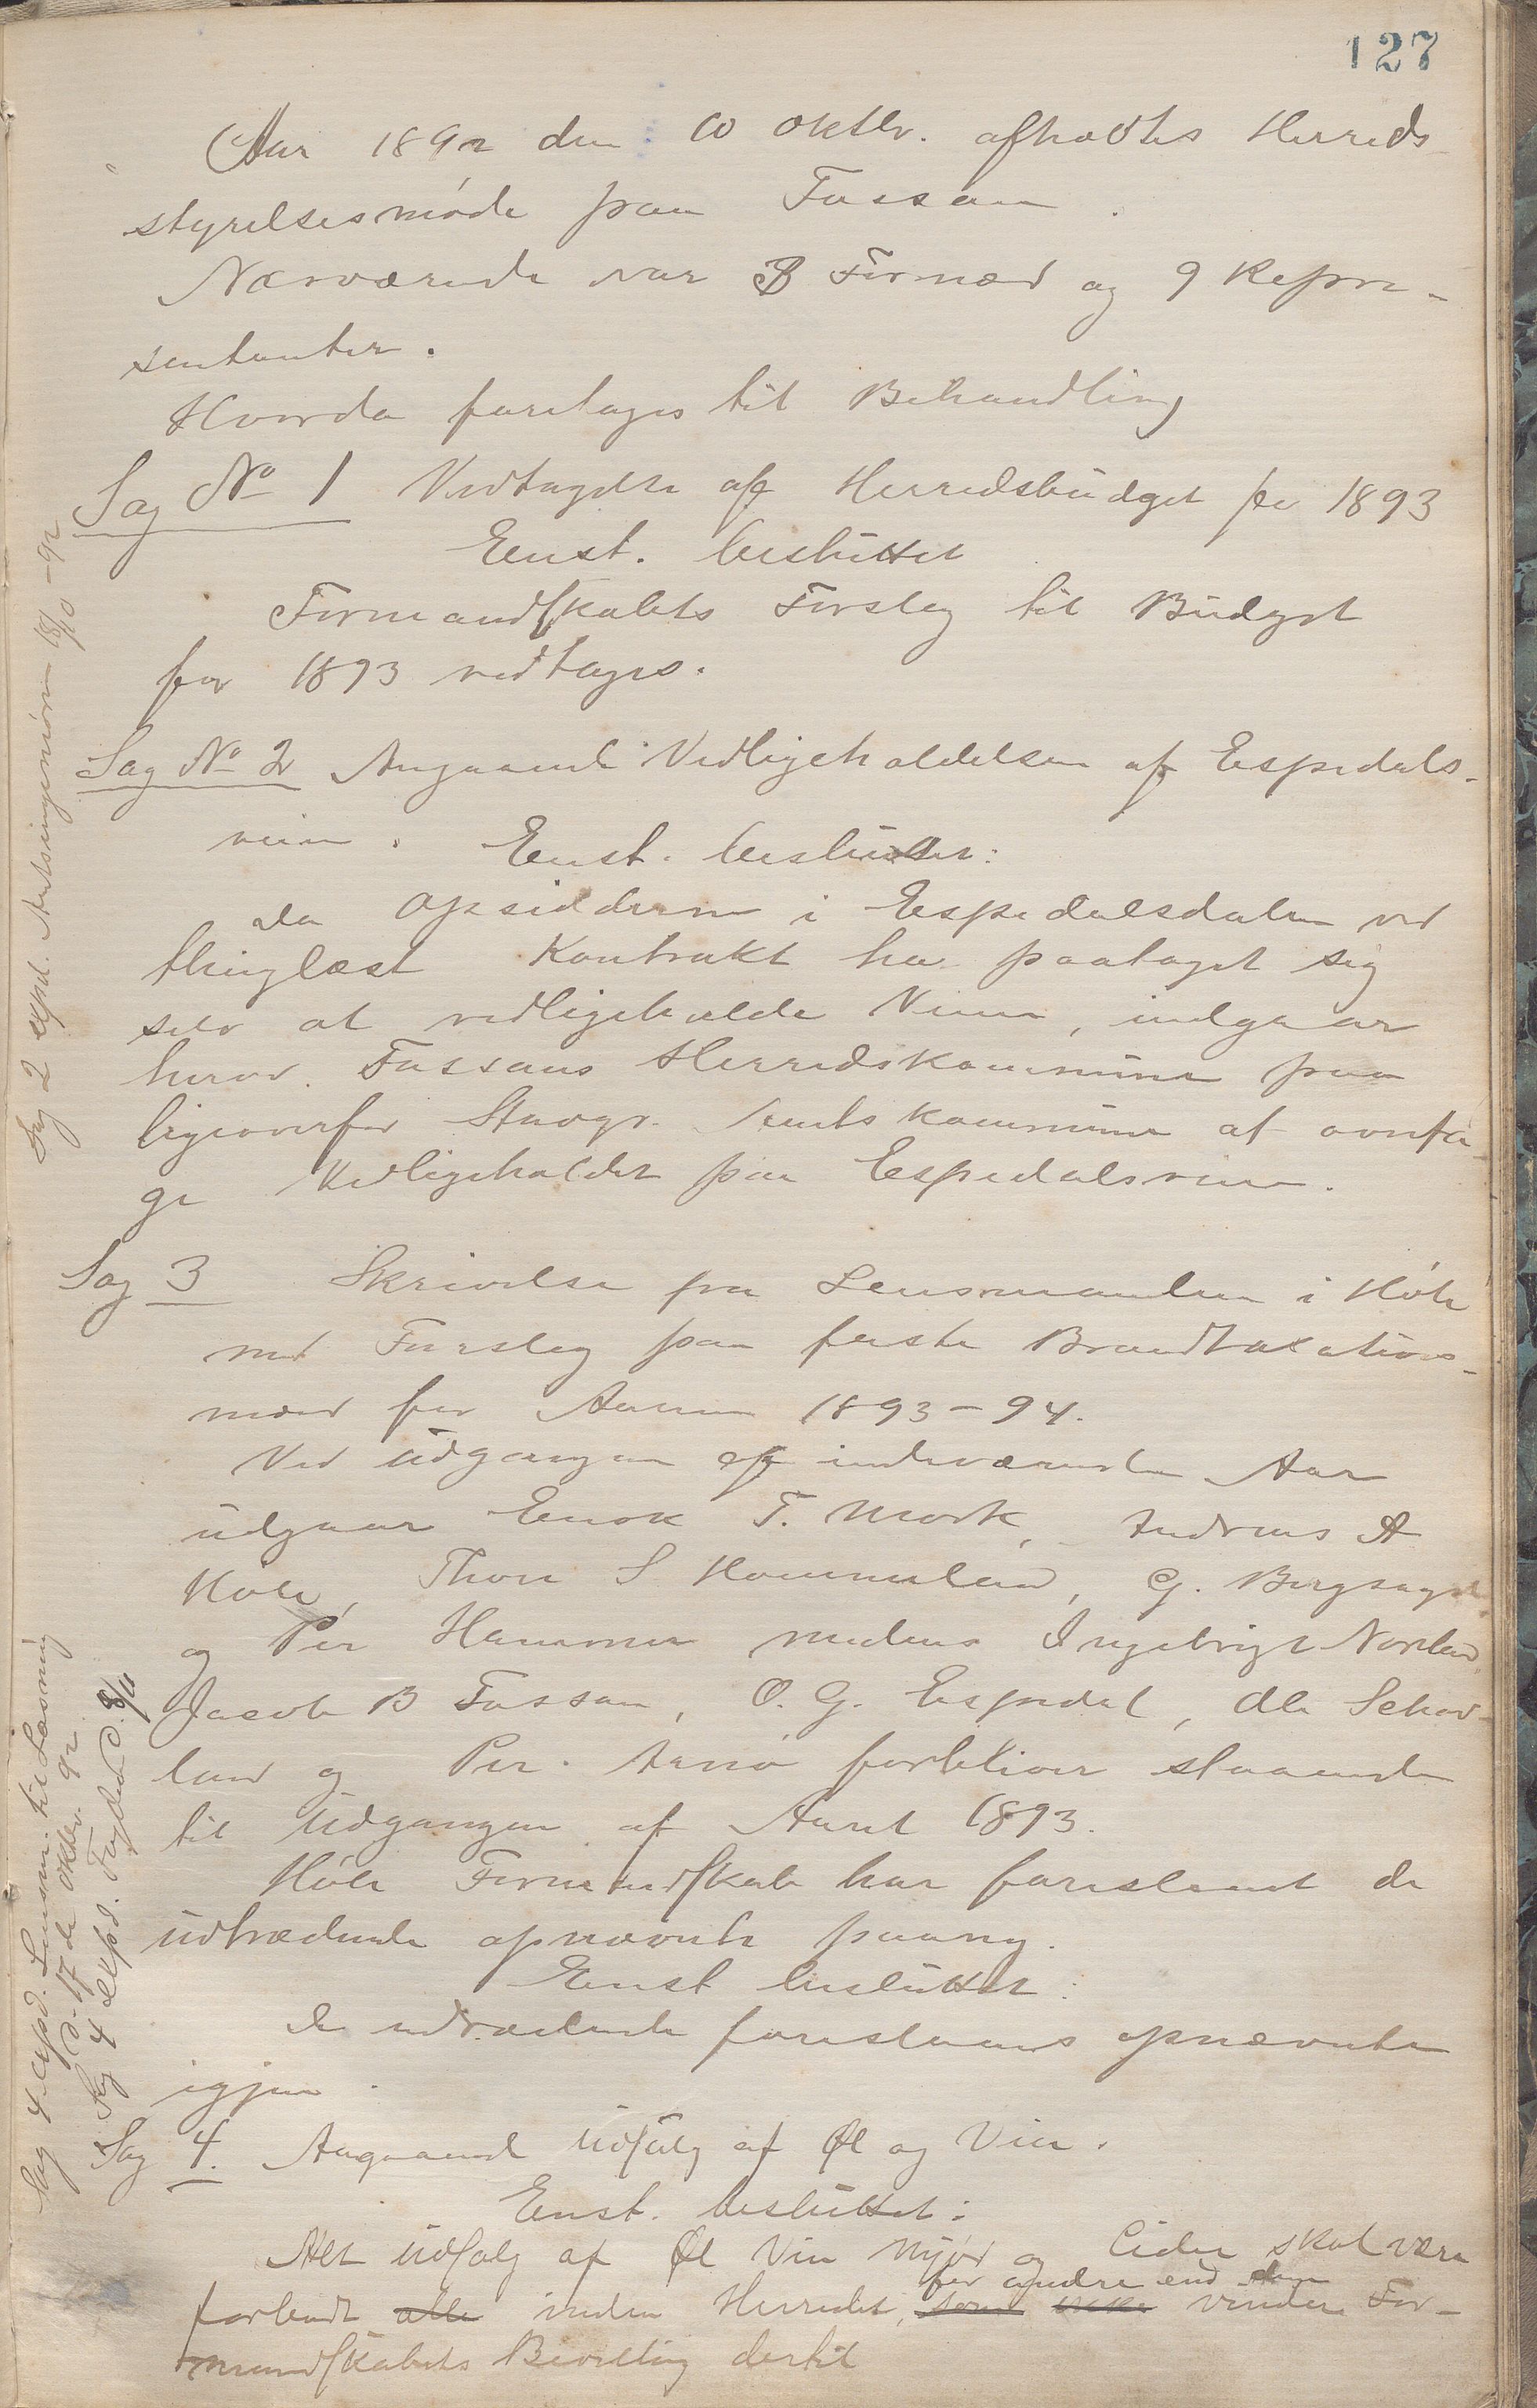 127
Aar 1892 den 10 oktbr. afholdtes Herreds
styrelsesmøde paa Fossan.
Nærværende var 3 Formænd og 9 Repræ-
sentanter.
Hvorda foretages til Behandling
Sag No 1 Vedtagelse af Herredsbudget for 1893
Eenst. besluttet
Formandskabets Forslag til Budget
for 1893 vedtages.
Sag No 2 Angaaende Vedligeholdelsen af Espedals-
veien. Eenst. besluttet:
Da Opsidderne i Espedalsdalen ved
thinglæst Kontrakt har paataget sig
selv at vedligeholde Veien, indgaar
herv. Fossans Herredskommune paa
ligeoverfor Stavgr. Amtskommune at overta-
ge Vedligeholdet paa Espedalsveien.
Sag 3 Skrivelse fra Lensmanden i Høle
med Forslag paa faste Brandtaxations-
mænd for Aarene 1893-94.
Ved Udgangen af indeværende Aar
udgaar Enok T. Mørk, Andreas A
Høle, Thore S Hommeland, G. Bergsagel
og Per Hammer medens Ingebrigt Norland
Jacob B Fossan, O. G. Espedal, Ole Schav-
land og Per. Arnø forbliver staaende
til Udgangen af Aaret 1893.
Høle Formandskab har foreslaaet de
udtrædende opnævnte paany.
Eenst besluttet:
De udtrædende foreslaaes opnævnte
igjen.
Sag 4. Angaaende Udsalg af Øl og Vin.
Eenst. besluttet:
Alt Udsalg af Øl Vin Mjød og Cider skal være
for andre end dem
forbudt alle inden Herredet, som ikke vinder For-
mandskabets Bevilling dertil
Sag 2 expd. Amtsingeniøren 18/10-92
Sag 4 expd. Lensm. til Læsning
d. 17de Oktbr. 92
Sag 4 Expd. Fogden d. 8/11